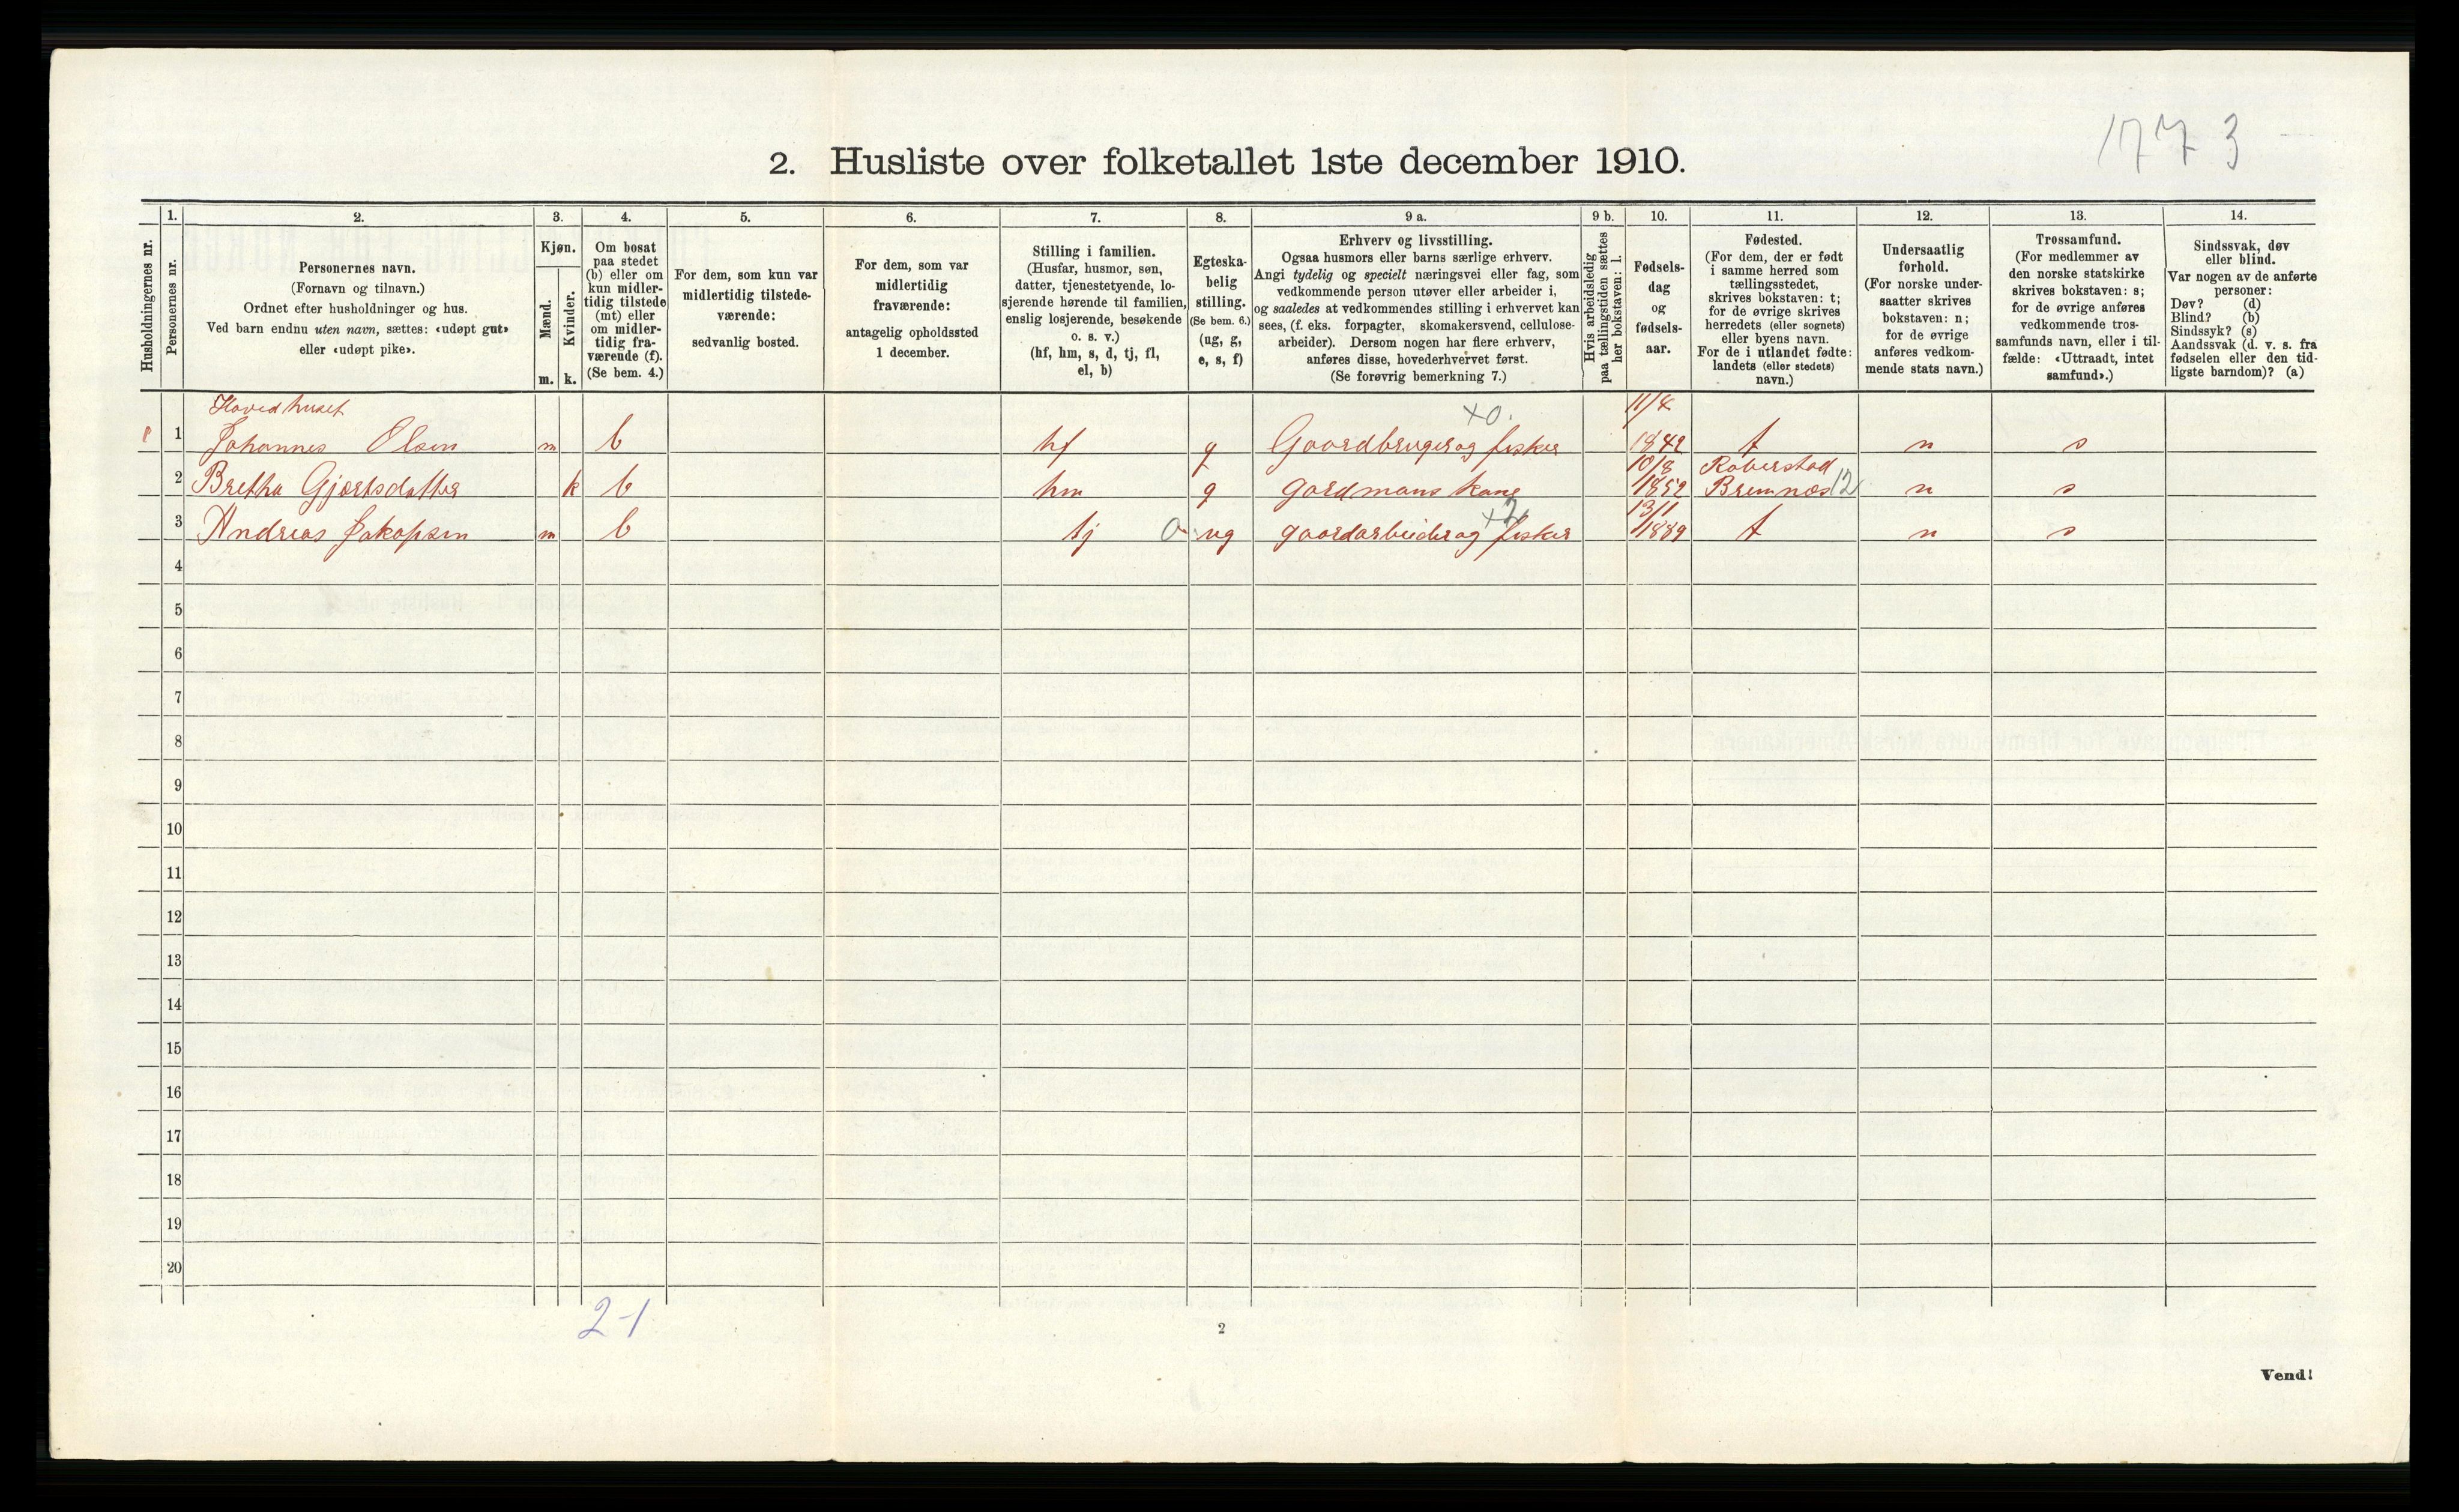 1773
2. Husliste over folketallet 1ste december 1910.
Husholdningernes nr.
1.
Personernes nr.
2.
Personernes navn.
(Fornavn og tilnavn.)
Ordnet efter husholdninger og hus.
Ved barn endnu uten navn, sættes: «udøpt gut»
eller «udøpt pike».
3.
Kjøn.
Mænd.
Kvinder.
m. k.
4.
Om bosat
paa stedet
(b) eller om
kun midler-
tidig tilstede
(mt) eller
om midler-
tidig fra-
værende (f).
(Se bem. 4.)
5.
For dem, som kun var
midlertidig tilstede-
værende:
sedvanlig bosted.
6.
For dem, som var
midlertidig
fraværende:
antagelig opholdssted
1 december.
7.
Stilling i familien.
(Husfar, husmor, søn,
datter, tjenestetyende, lo-
sjerende hørende til familien,
enslig losjerende, besøkende
o. s. v.)
(hf, hm, s, d, tj, fl,
el, b)
8.
Egteska-
belig
stilling.
(Se bem. 6.)
(ug, g,
e, s, f)
9 a.
Erhverv og livsstilling.
Ogsaa husmors eller barns særlige erhverv.
Angi tydelig og specielt næringsvei eller fag, som
vedkommende person utøver eller arbeider i,
og saaledes at vedkommendes stilling i erhvervet kan
sees, (f. eks. forpagter, skomakersvend, cellulose-
arbeider). Dersom nogen har flere erhverv,
anføres disse, hovederhvervet først.
(Se forøvrig bemerkning 7.)
9 b.
Hvis arbeidsledig
paa tællingstiden sættes
her bokstaven: l.
10.
Fødsels-
dag
og
fødsels-
aar.
11.
Fødested.
(For dem, der er født
i samme herred som
tællingsstedet,
skrives bokstaven: t;
for de øvrige skrives
herredets (eller sognets)
eller byens navn.
For de i utlandet fødte:
landets (eller stedets)
navn.)
12.
Undersaatlig
forhold.
(For norske under-
saatter skrives
bokstaven: n;
for de øvrige
anføres vedkom-
mende stats navn.)
13.
Trossamfund.
(For medlemmer av
den norske statskirke
skrives bokstaven: s;
for de øvrige anføres
vedkommende tros-
samfunds navn, eller i til-
fælde: «Uttraadt, intet
samfund».)
14.
Sindssvak, døv
eller blind.
Var nogen av de anførte
personer:
Døv? (d)
Blind? (b)
Sindssyk? (s)
Aandssvak (d. v. s. fra
fødselen eller den tid-
ligste barndom)? (a)
Hovedhuset +0. 11/4
1 Johannes Olsen m b hf g Gaardbruger og fisker 1842 t n s
10/8 Roberstad
2 Bretha Gjertsdatter k b hm g gardmans kone 1852 Bremnes 12 n s
+2 13/11
3 Andreas Jakopsen m b tj 0- ug gaardarbeider og fisker 1889 t n s
4
5
6
7
8
9
10
11
12
13
14
15
16
17
18
19
20
2-1
2
Vend!